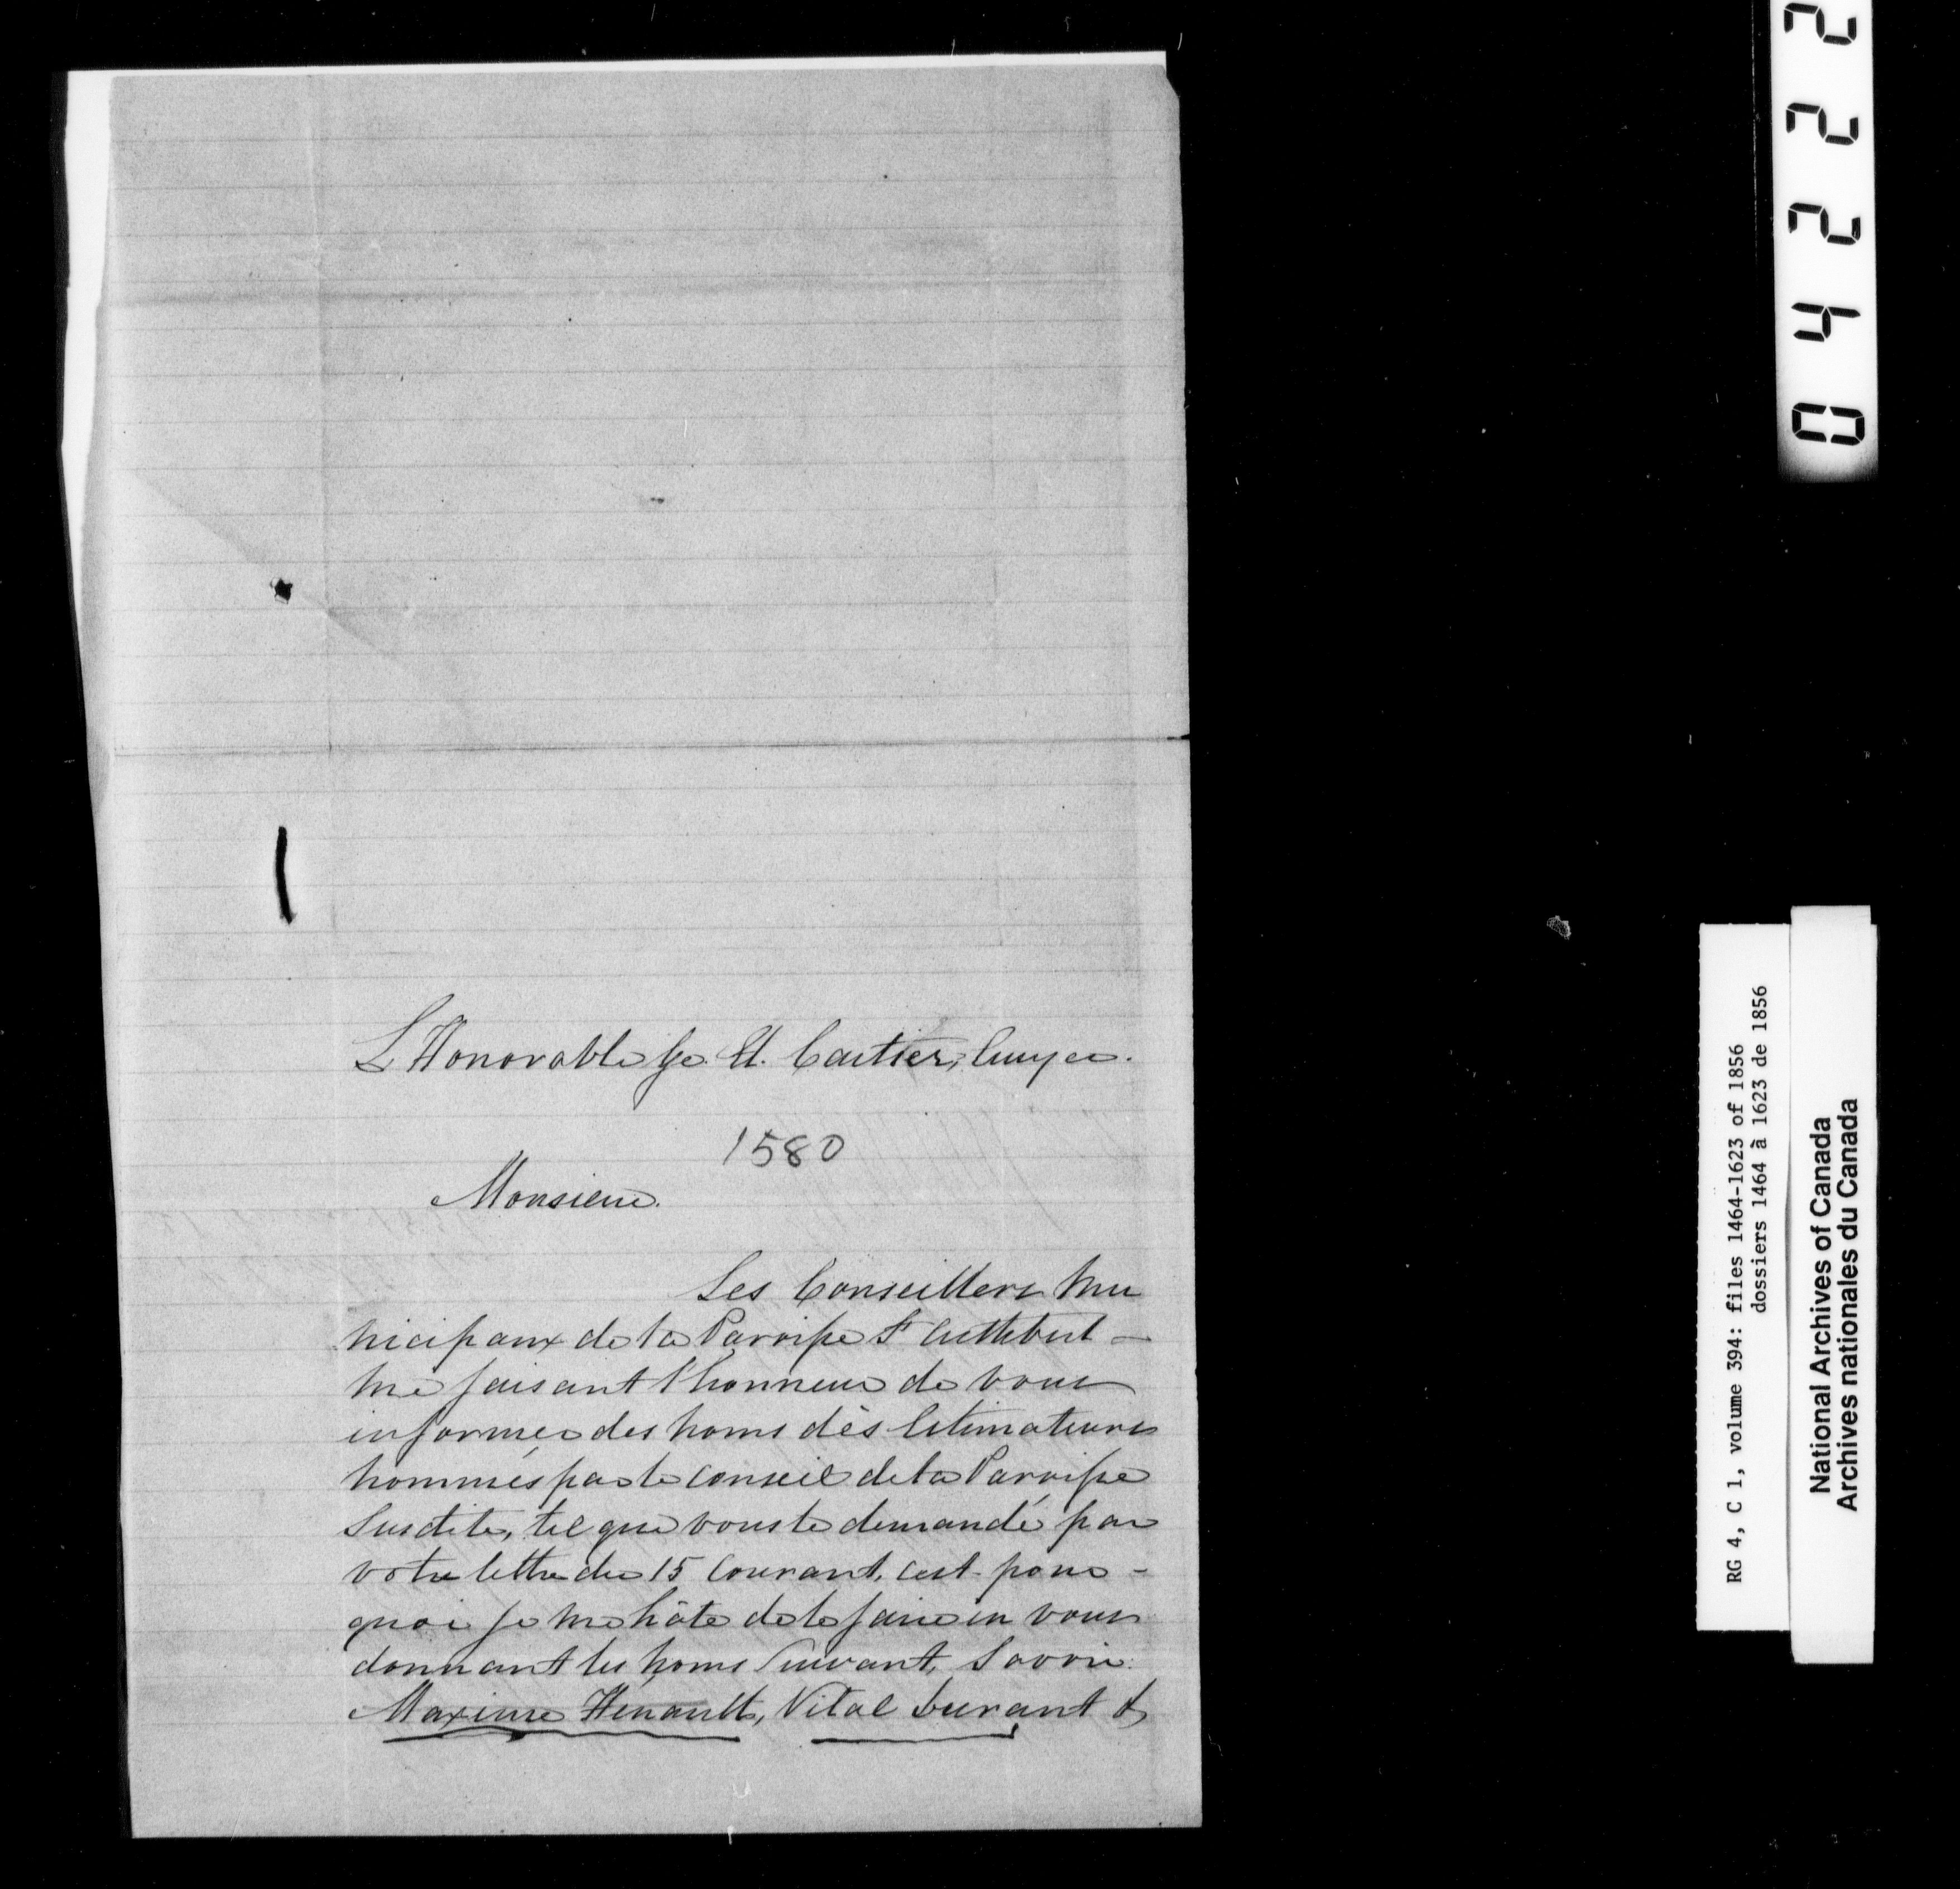 L'Honorable Geo. Et. Cartier, Ecuyer.
1580
Monsieur.
Les Conseillers Mu
nicipaux de la Paroisse St Cuthbert -
me faisant l'honneur de vous
informer des noms dès Estimateurs
nommés par le conseil de la Paroisse
Susdite, tel que vous le demandé par
votre lettre du 15 Courant, cest - pour -
quoi je me hâte de le faire en vous
donnant les noms Suivant, Savoir:
Maxime Hénault, Vital Durant &
04222
RG 4, C 1, volume 394: files 1464-1623 of 1856
dossiers 1464 à 1623 de 1856
National Archives of Canada
Archives nationales du Canada